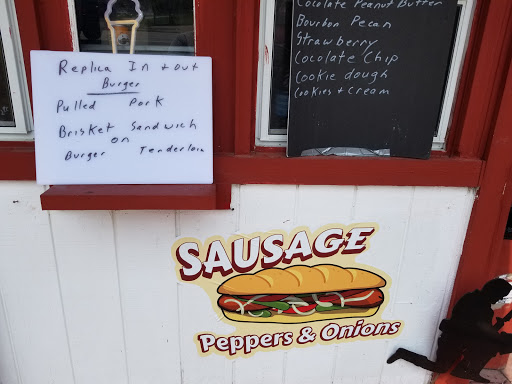 Replica In + out
Burger
Pulled Pork
Brisket Sandwich
on
Burger Tenderloin
Cocolate Peanut Butter
Bourbon Pecan
Strawberry
Cocolate Chip
Cookie dough
Cookies + Cream
SAUSAGE
Peppers & Onions